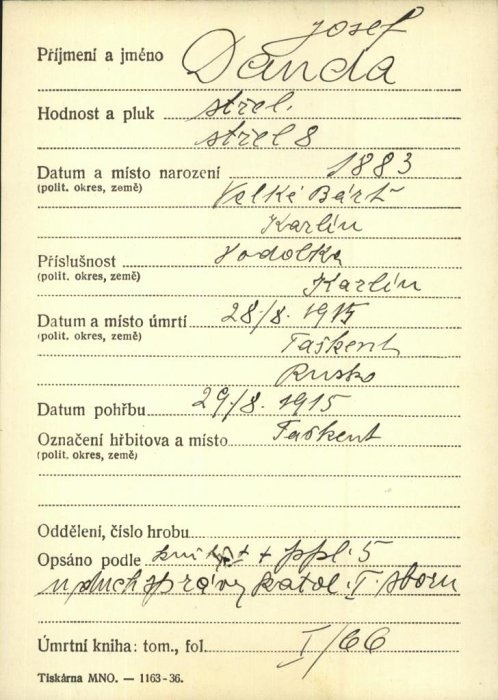 Josef
Příjmení a jméno Danda
Hodnost a pluk střel.
střel 8
Datum a místo narození 1883
(polit. okres, země) Velké
Karlín
Příslušnost Vodolka
(polit. okres, země) Karlín
Datum a místo úmrtí 28./8. 1915
(polit. okres, země) Taškent
Rusko
Datum pohřbu 29./8. 1915
Označení hřbitova a místo Taškent
(polit. okres, země)
Oddělení, číslo hrobu
Opsáno podle ppl. 5
duch správy katol. I. sboru
Úmrtní kniha: tom., fol. I/66
Tiskárna MNO. — 1163-36.